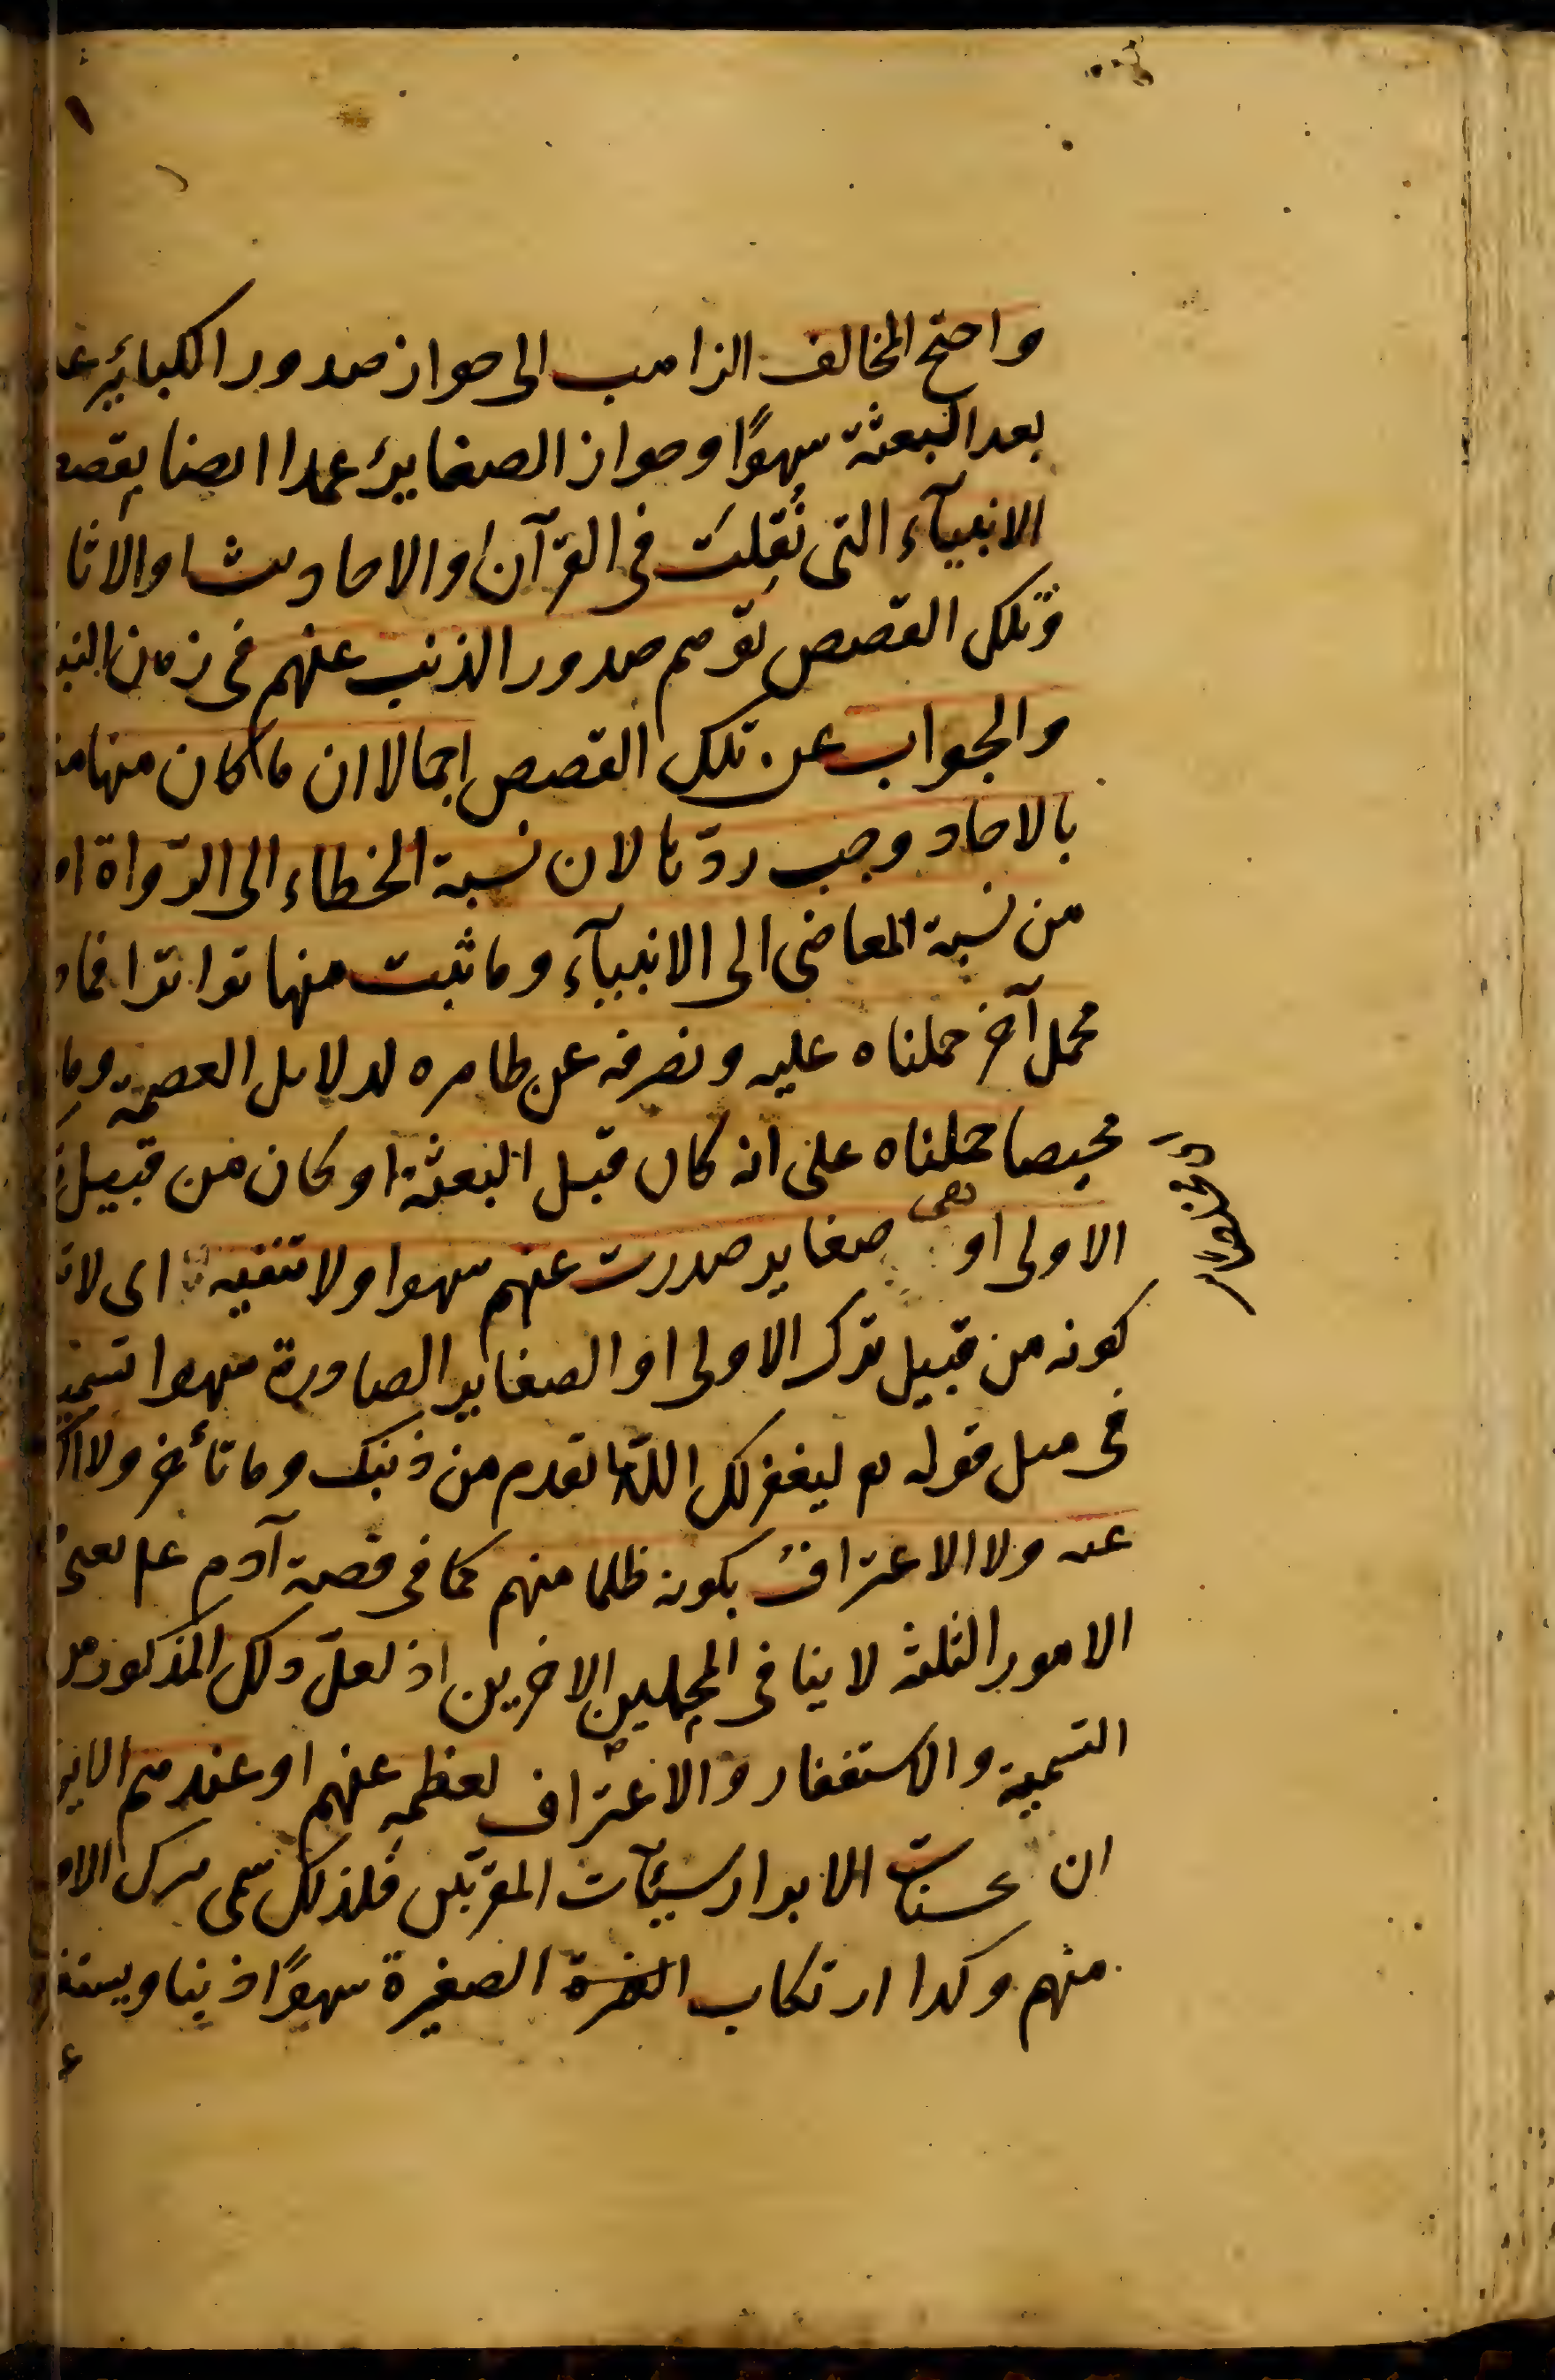 واحتج المخالف الذاهب الى جواز صدور الكبائر
بعد البعثة سهوًا وجواز الصغاير عمدا ايضا بقصص
الانبيآء التى نُقِلَت فى القرآن او الاحاديث او الاثا
وتلك القصص توهم صدور الذنب عنهم فى زمان
والجواب عن تلك القصص اجمالا ان ما كان منها
بالاحاد وجب ردّها لان نسبة الخطاء الى الرّواة
من نسبة المعاصى الى الانبيآء وما ثبت منها تواترا فما
محمل آخر حملناه عليه ونصرفه عن ظاهره لدلايل العصمة وما
محيصا حملناه على انه كان قبل البعثة او كان من قبيل
الاولى او صغاير صدرت عنهم سهوا ولا تنفيه اى لا
كونه من قبيل ترك الاولى او الصغاير الصادرة سهوا
فى مثل قوله تع ليغفر لك الله ما تقدم من ذنبك وما تأخر ولا
عنه ولا الاعتراف بكونه ظلما منهم كما فى قصة آدم عم يعنى
الامور الثلثة لا ينافى المحملين الاخرين اذ لعلّ ذلك المذكور من
التسمية والاستغفار والاعتراف لعظمه عنهم او عندهم
ان حسنات الابرار سيئآت المقربين فلذلك سمى ترك
منهم وكذا ارتكاب الصغيرة سهوًا ذنبا